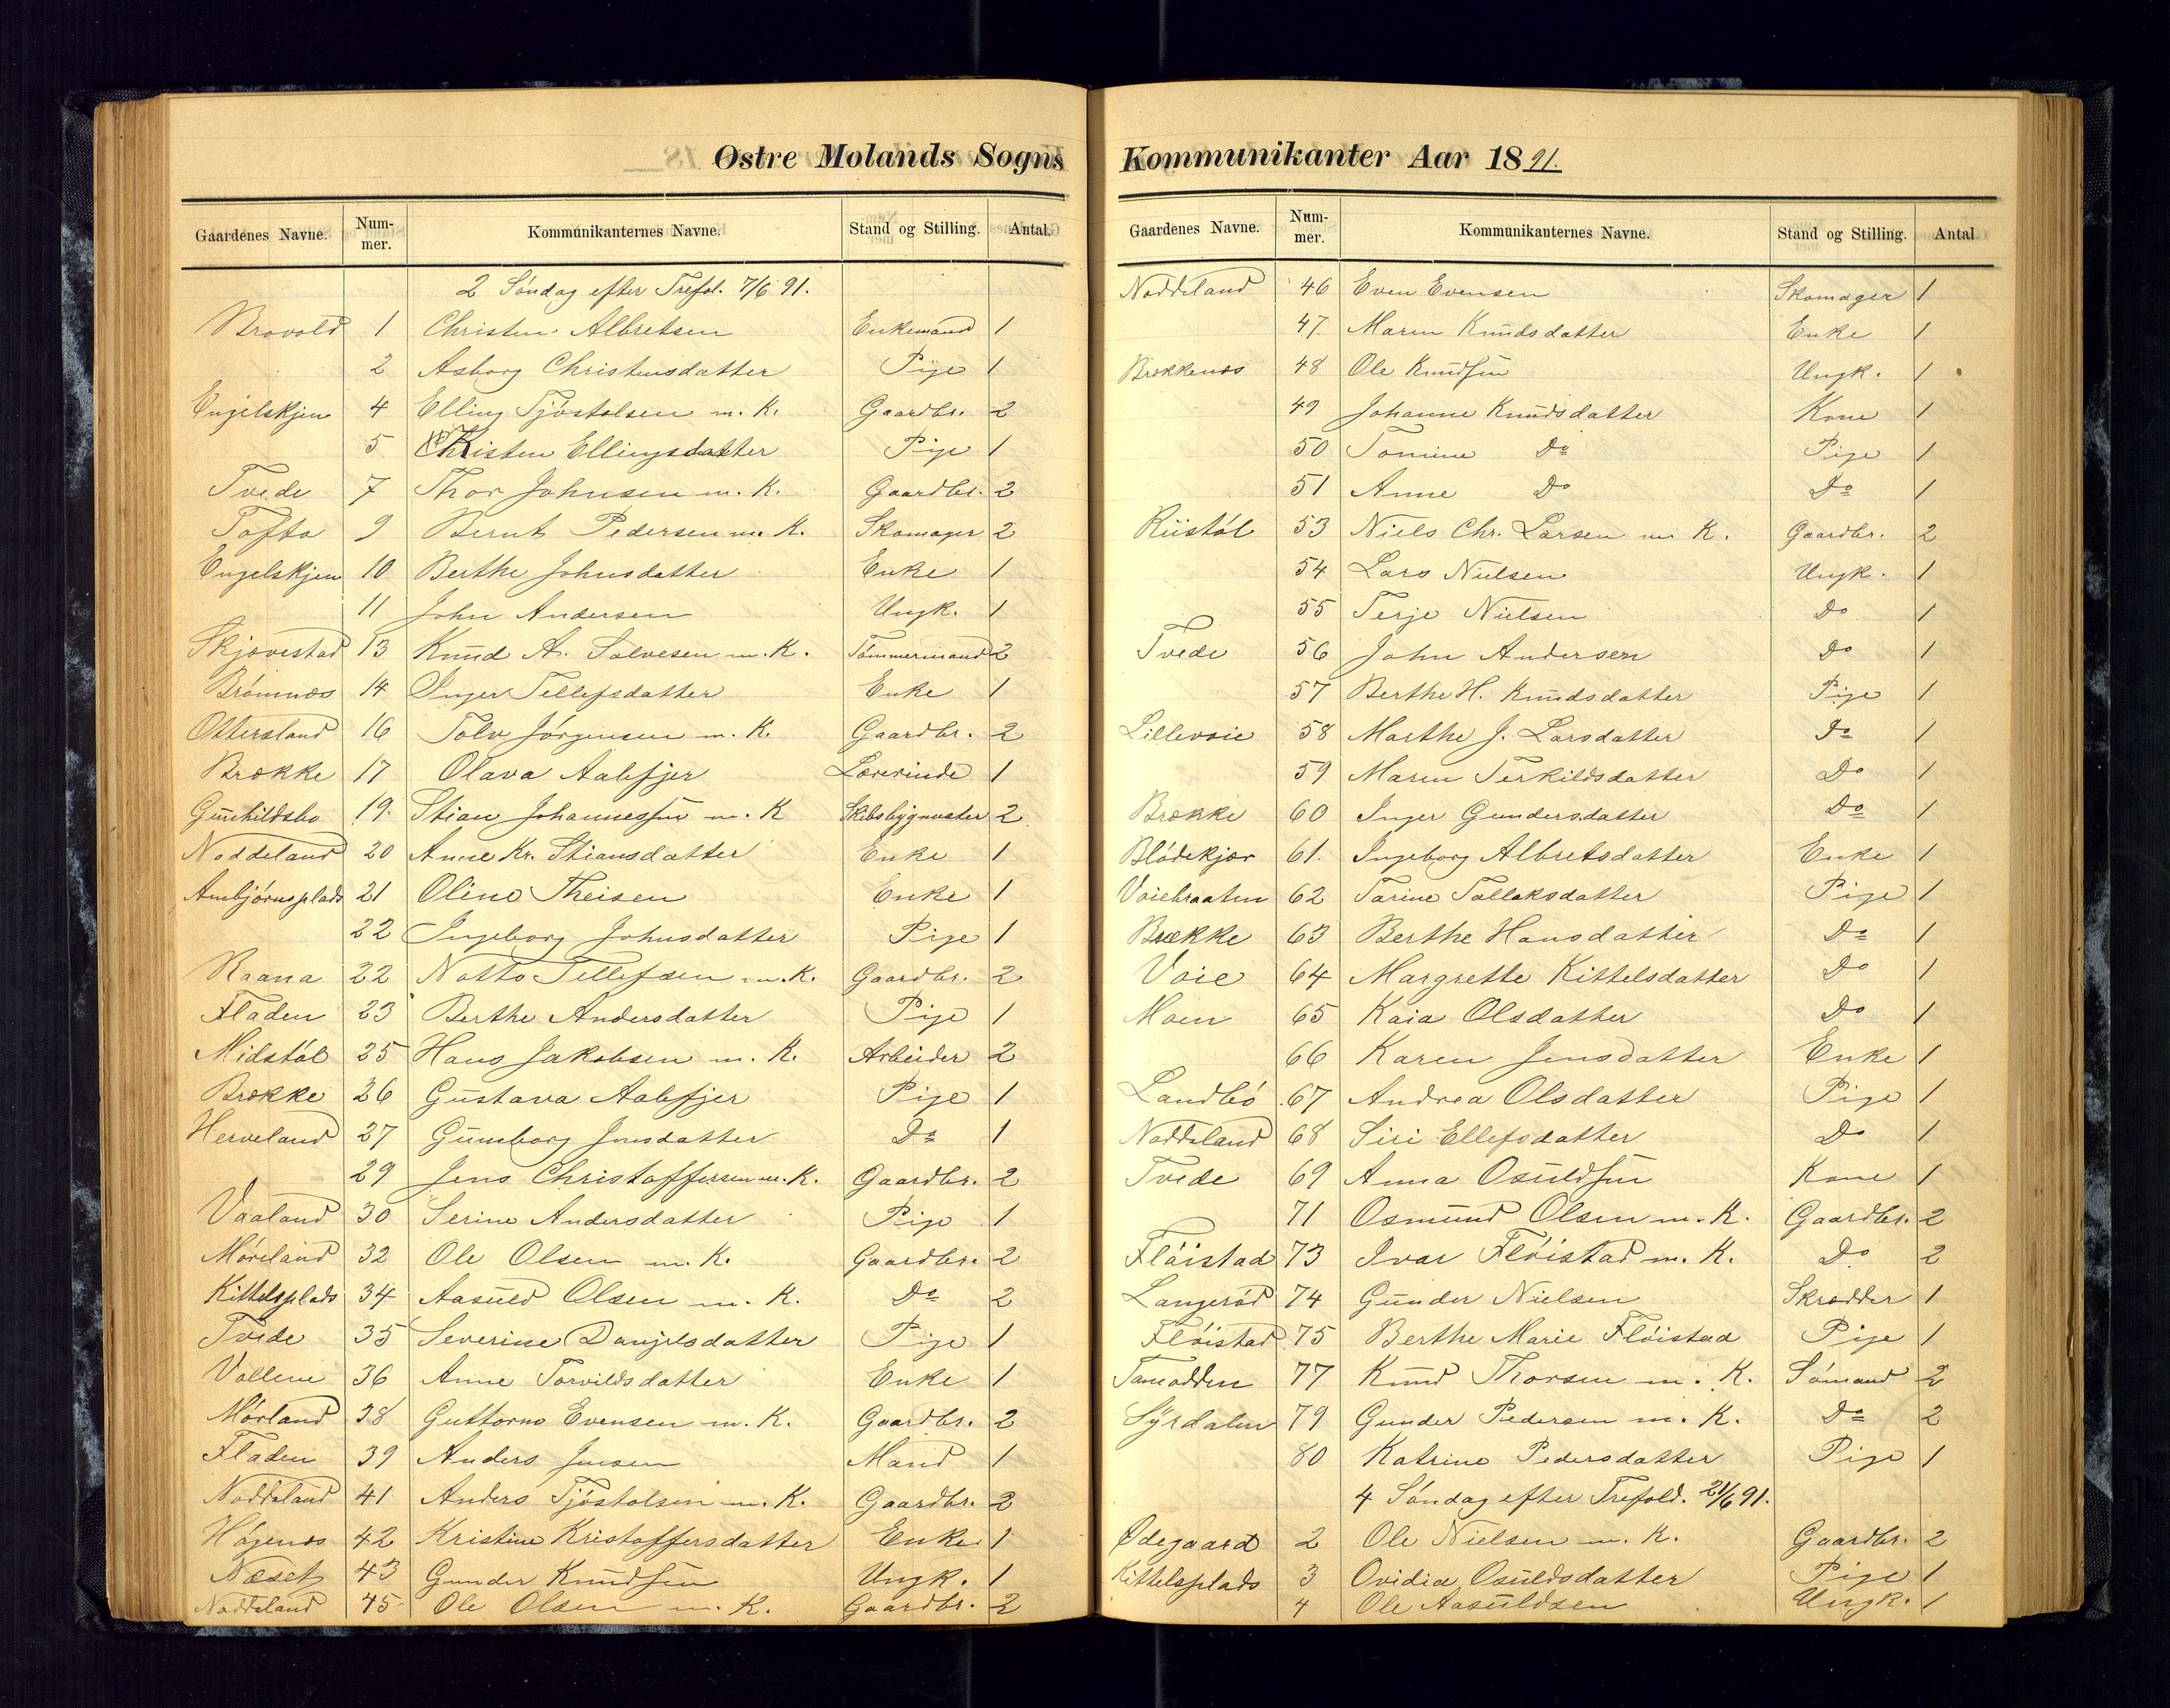 Østre Molands Sogns
Gaardenes Navne. Nummer. Kommunikanternes Navne. Stand og Stilling. Antal.
2 Søndag efter Trefol. 7/6 91.
Brovold 1 Christen Albretsen Enkemand 1
2 Asborg Christensdatter Pige 1
Engelskjen 4 Elling Tjøstolsen m. K. Gaardbr. 2
5 Kristen Ellingsdatter Pige 1
Tvede 7 Thor Johnsen m. K. Gaardbr. 2
Tofta 9 Bernt Pedersen m. K. Skomager 2
Engelskjen 10 Berthe Johnsdatter Enke 1
11 John Andersen Ungk. 1
Skjævestad 13 Knud A. Salvesen m. K. Tømmermand 2
Brømnæs 14 Inger Tellefsdatter Enke 1
Ottersland 16 Tolv Jørgensen m. K. Gaardbr. 2
Brække 17 Olava Aabefjer Lærerinde 1
Gunhildsbo 19. Stian Johannessen m. K Skibsbygmester 2
Noddeland 20 Anne Kr. Stiansdatter Enke 1
Ambjørnsplads 21 Oline Theisen Enke 1
22 Ingeborg Johnsdatter Pige 1
Raana 22 Notto Tellefsen m. K. Gaardbr. 2
Fladen 23 Berthe Andersdatter Pige 1
Midstøl 25 Hans Jakobsen m. K. Arbeider 2
Brække 26 Gustava Aabefjer Pige 1
Herveland 27 Gunborg Jensdatter Do 1
29 Jens Christoffersen m. K. Gaardbr. 2
Vaaland 30 Serine Andersdatter Pige 1
Møreland 32 Ole Olsen m. K. Gaardbr. 2
Kittelsplads 34 Aasuld Olsen m. K. Do 2
Tvede 35 Severine Danjelsdatter Pige 1
Vollene 36 Anne Torvildsdatter Enke 1
Mørland 38 Guttorm Evensen m. K. Gaardbr. 2
Fladen 39 Anders Jensen Mand 1
Noddeland 41 Anders Tjøstolsen m. K. Gaardbr. 2
Høgenæs 42 Kristine Kristoffersdatter Enke 1
Næset 43 Gunder Knudsen Ungk. 1
Noddeland 45 Ole Olsen m. K. Gaardbr. 2
Kommunikanter Aar 1891.
Gaardenes Navne. Nummer. Kommunikanternes Navne. Stand og Stilling. Antal.
Noddeland 46 Even Evensen Skomager 1
47 Maren Knudsdatter Enke 1
Brækkenæs 48 Ole Knudsen Ungk. 1
49 Johanne Knudsdatter Kone 1
50 Tomine Do Pige 1
51 Anne Do Do 1
Riistøl 53 Niels Chr. Larsen m. K. Gaardbr. 2
54 Lars Nielsen Ungk. 1
55 Terje Nielsen Do 1
Tvede 56 John Andersen Do 1
57 Berthe H. Knudsdatter Pige 1
Lillevoie 58 Marthe J. Larsdatter Do 1
59 Maren Terkildsdatter Do 1
Brække 60 Inger Gundersdatter Do 1
Blødekjær 61. Ingeborg Albretsdatter Enke 1
Voiebraaten 62 Tarine Tallaksdatter Pige 1
Brække 63 Berthe Hansdatter Do 1
Voie 64 Margrette Kittelsdatter Do 1
Moen 65 Kaia Olsdatter Do 1
66 Karen Jensdatter Enke 1
Landbø 67 Andrea Olsdatter Pige 1
Noddeland 68 Siri Ellefsdatter Do 1
Tvede 69 Anna Osuldsen Kone 1
71 Osmund Olsen m. K. Gaardbr. 2
Fløistad 73 Ivar Fløistad m. K. Do 2
Langerød 74 Gunder Nielsen Skrædder 1
Fløistad 75 Berthe Marie Fløistad Pige 1
Taneodden 77 Knud Thorsen m. K. Sømand 2
Syrdalen 79 Gunder Pedersen m. K. Do 2
80 Katrine Pedersdatter Pige 1
4 Søndag efter Trefold. 21/6 91.
Ødegaard 2 Ole Nielsen m. K. Gaardbr. 2
Kittelsplads 3 Ovidia Osuldsdatter Pige 1
4 Ole Aasuldsen Ungk. 1